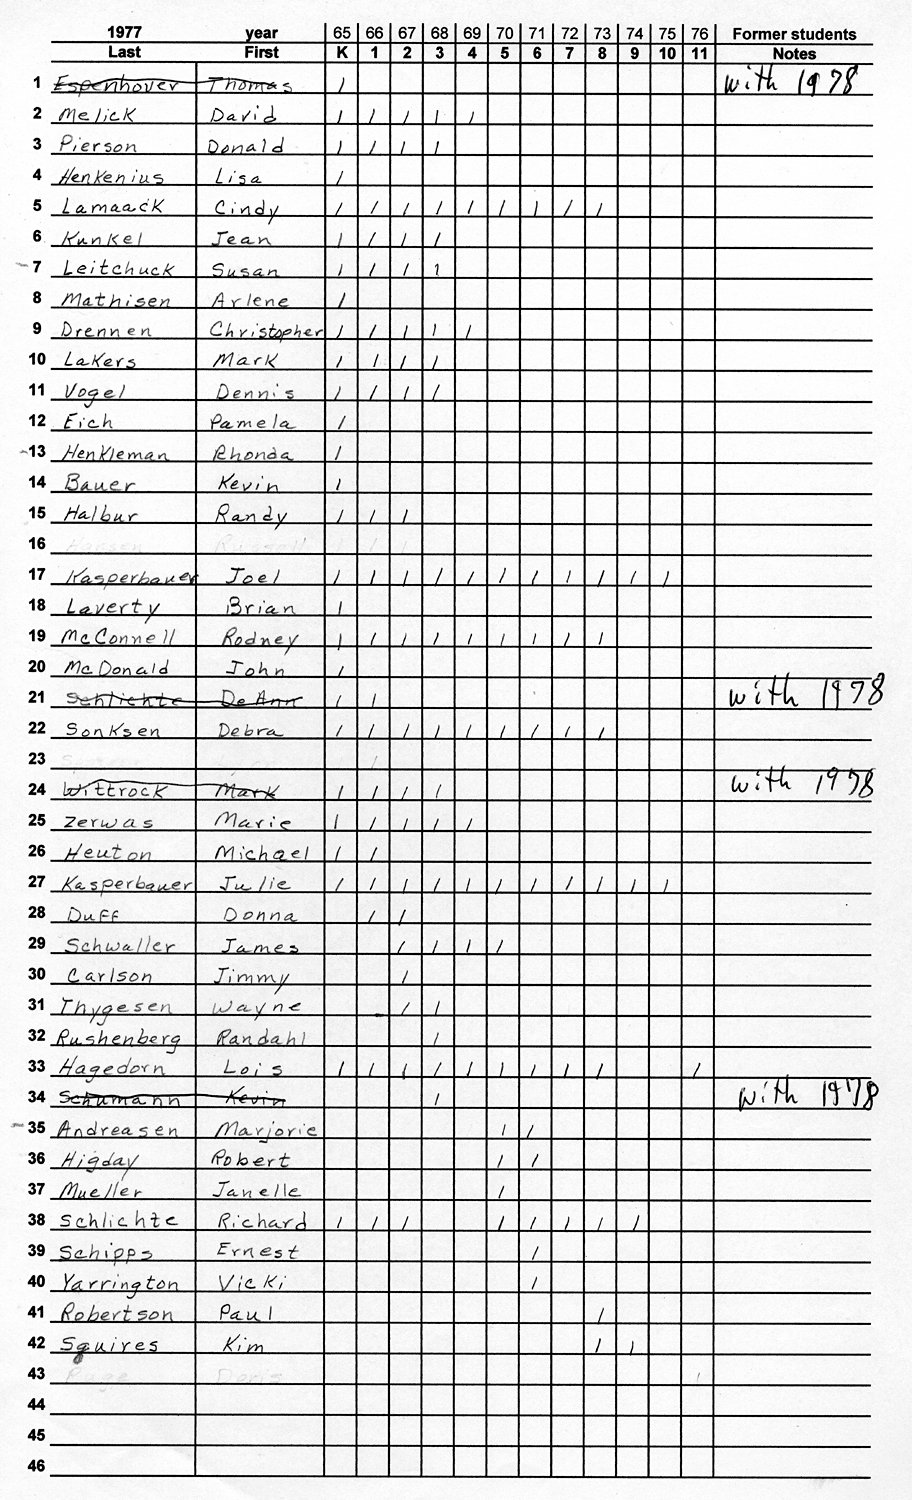 1977 year 65 66 67 68 69 70 71 72 73 74 75 76 Former students
Last First K 1 2 3 4 5 6 7 8 9 10 11 Notes
1 Espenhover Thomas / with 1978
2 Melick David / / / / /
3 Pierson Donald / / / /
4 Henkenius Lisa /
5 Lamaack Cindy / / / / / / / / /
6 Kunkel Jean / / / /
7 Leitchuck Susan / / / /
8 Mathisen Arlene /
9 Drennen Christopher / / / / /
10 Lakers Mark / / / /
11 Vogel Dennis / / / /
12 Eich Pamela /
13 Henkleman Rhonda /
14 Bauer Kevin /
15 Halbur Randy / / /
16 Hansen Russell / / /
17 Kasperbauer Joel / / / / / / / / / / /
18 Laverty Brian /
19 McConnell Rodney / / / / / / / / /
20 McDonald John /
21 Schlichte DeAnn / / with 1978
22 Sonksen Debra / / / / / / / / /
23
24 Wittrock Mark / / / / with 1978
25 Zerwas Marie / / / / /
26 Heuton Michael / /
27 Kasperbauer Julie / / / / / / / / / / /
28 Duff Donna / /
29 Schwaller James / / / /
30 Carlson Jimmy /
31 Thygesen Wayne / /
32 Rushenberg Randahl /
33 Hagedorn Lois / / / / / / / / / /
34 Schumann Kevin / with 1978
35 Andreasen Marjorie / /
36 Higday Robert / /
37 Mueller Janelle /
38 Schlichte Richard / / / / / / / /
39 Schipps Ernest /
40 Yarrington Vicki /
41 Robertson Paul /
42 Squires Kim / /
43 Ruge Doris /
44
45
46